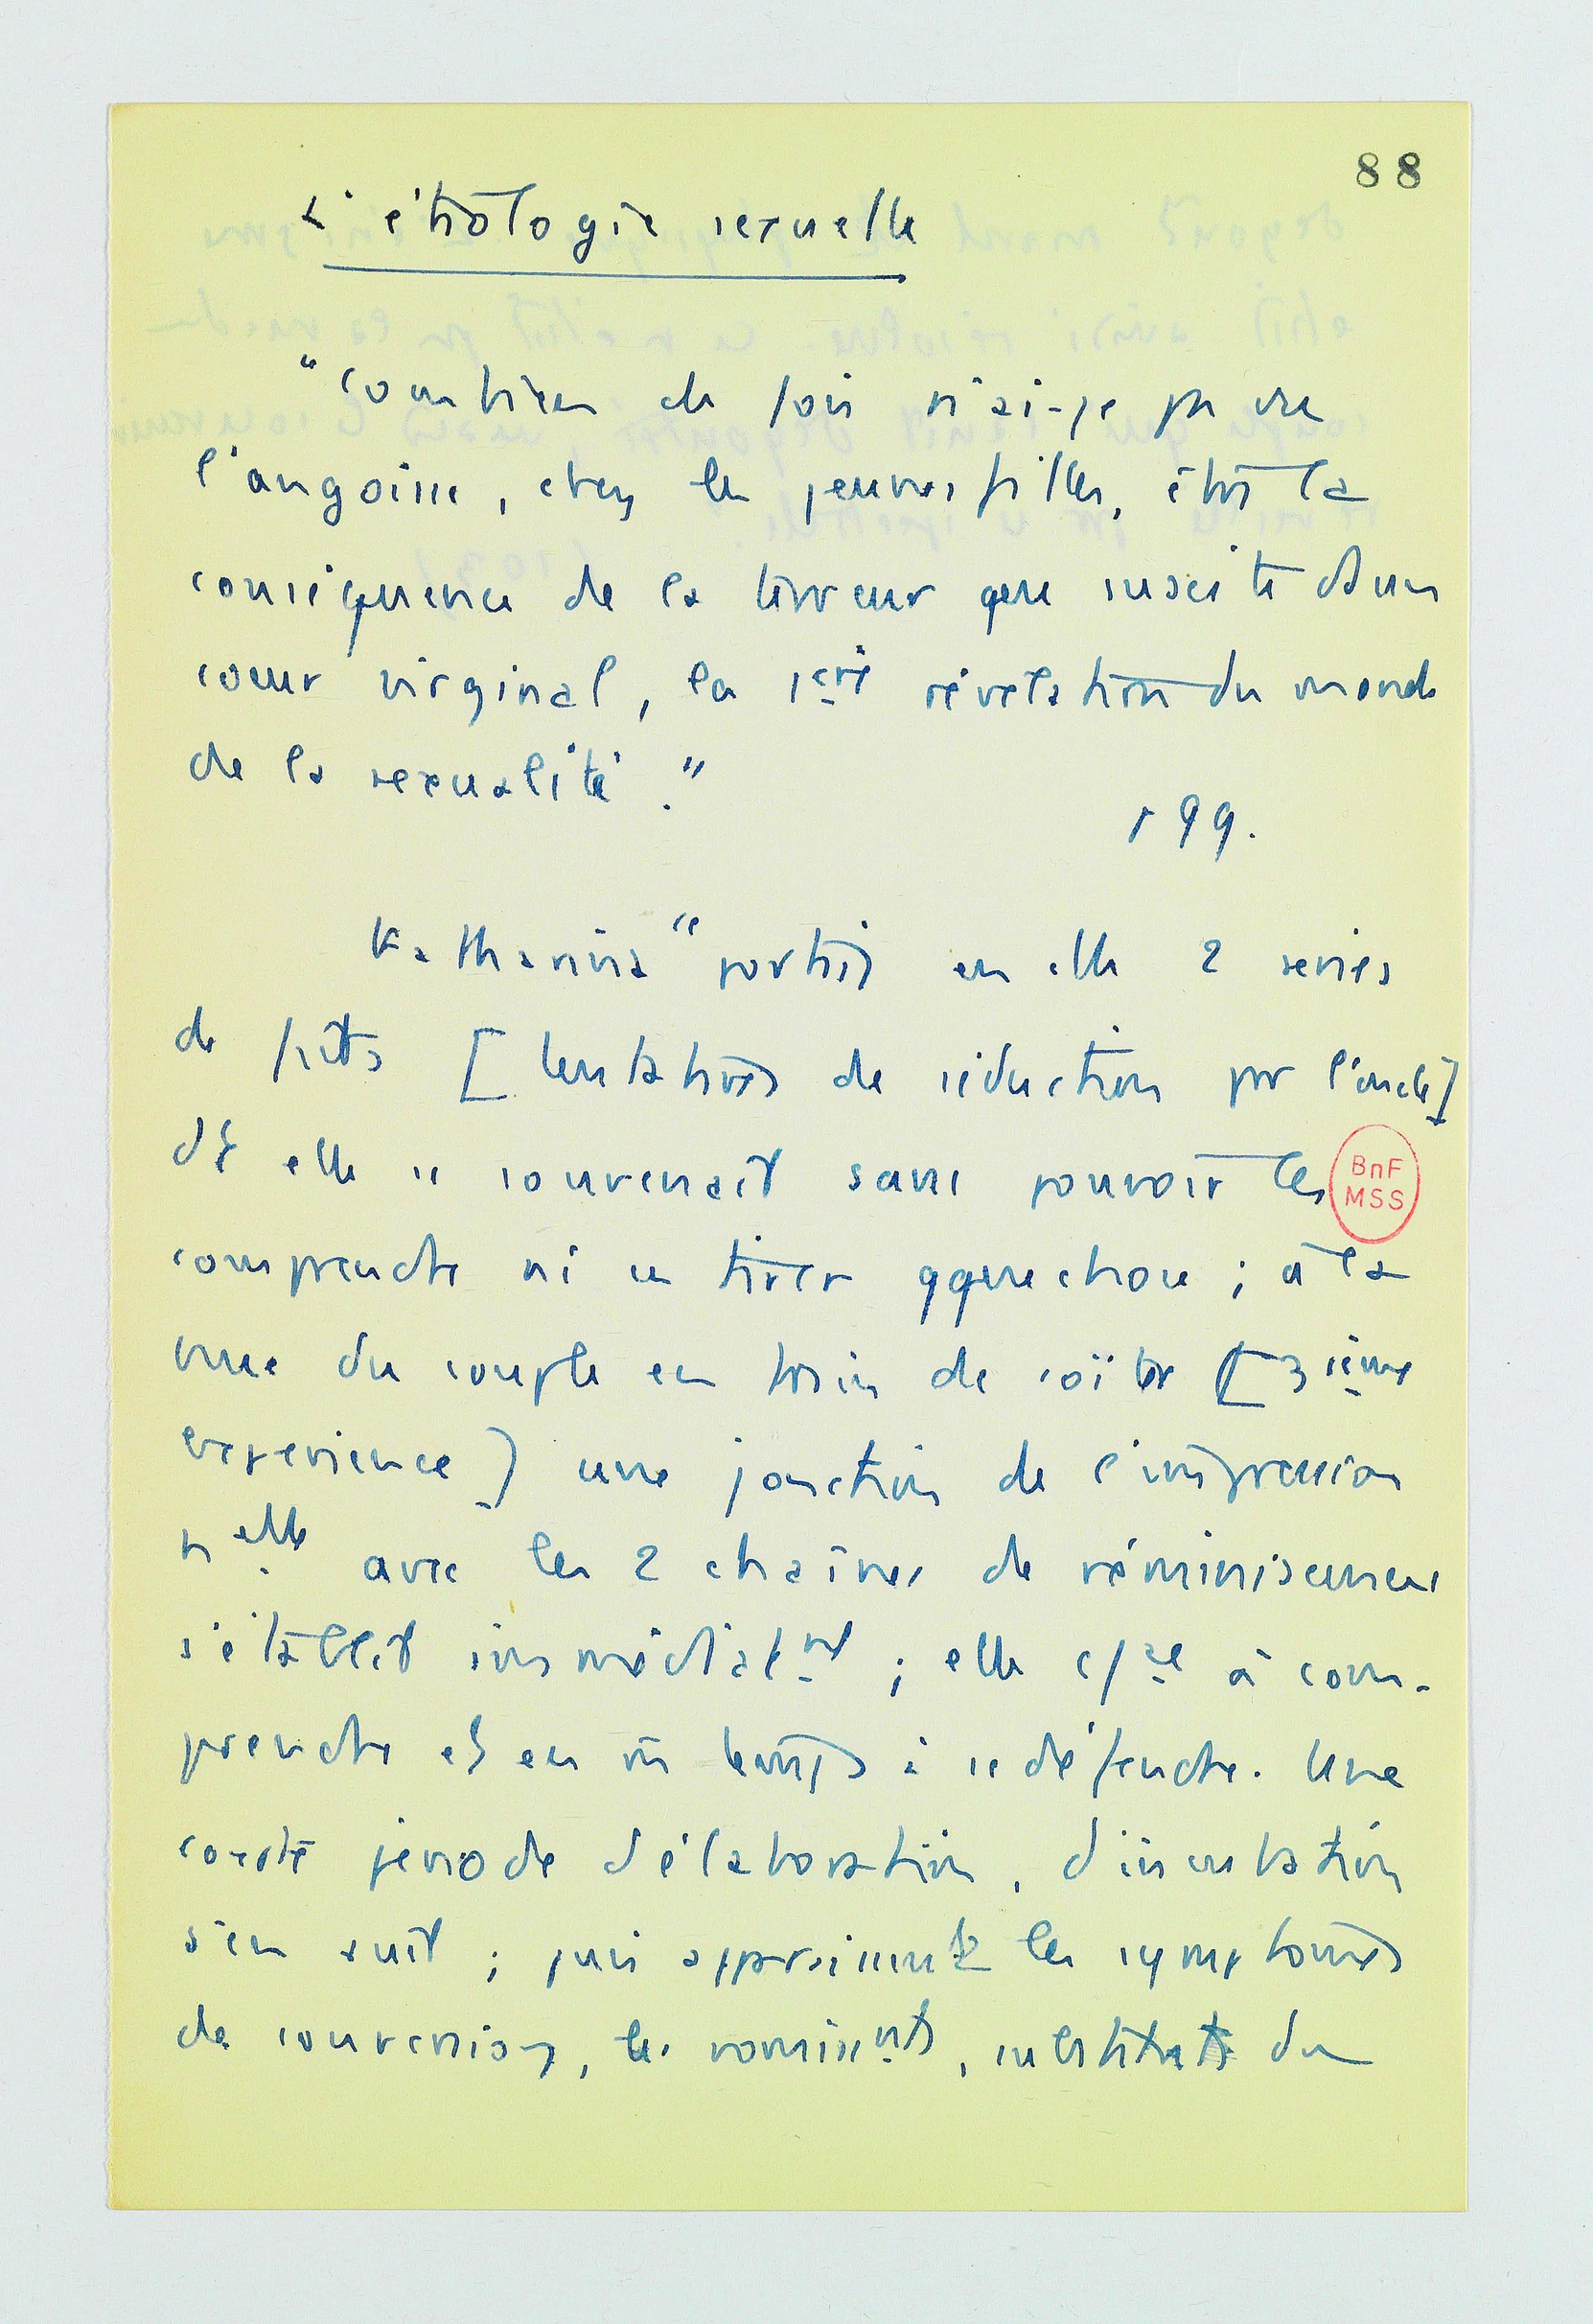 88
L'étiologie sexuelle
"Combien de fois n'ai-je pas vu
l'angoisse, chez les jeunes filles, être la
conséquence de la terreur que suscite dans un
cœur virginal, la 1ère révélation du monde
de la sexualité."
p 99.
Katharina "portait en elle 2 séries
de faits [tentatives de séduction par l'oncle]
dt elle se souvenait sans pouvoir les
BnF
MSS
comprendre ni en tirer qquechose ; à la
vue du couple en train de coïter [3ième
expérience] une jonction de l'impression
nelle avec les 2 chaînes de réminiscences
s'établit immédiatmt ; elle à com-
prendre et en m̂ temps à se défendre. Une
courte période d'élaboration, d'incubation
s'en suit ; puis apparaissent les symptômes
de conversion, les vomissmts, substituts du